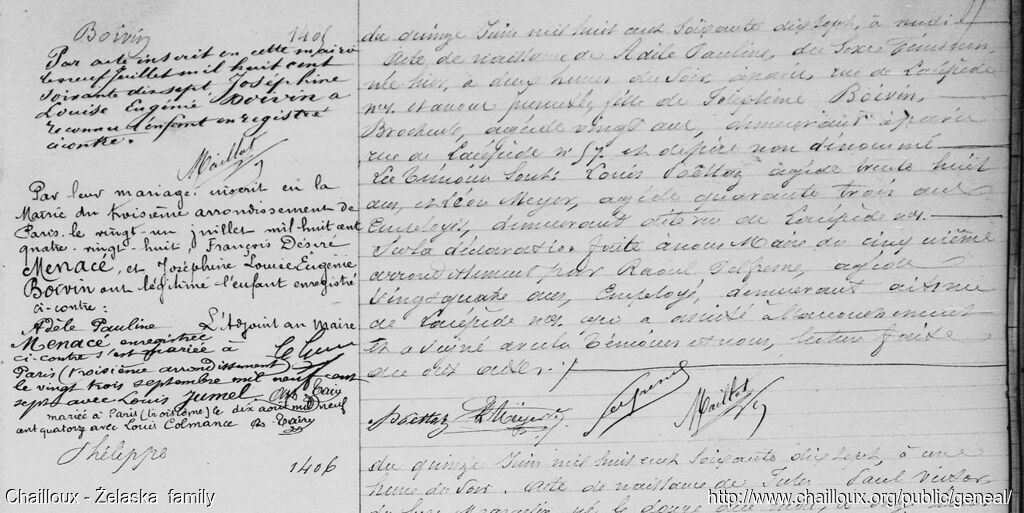 Boivin 1405
Par acte inscrit en cette mairie
le neuf juillet mil huit cent
soixante dix sept, Joséphine
Louise Eugénie Boivin a
reconnu l'enfant enregistré
ci contre.
Maillot
Par leur mariage, inscrit en la
Mairie du troisième arrondissement de
Paris, le vingt-un juillet mil huit cent
quatre-vingt-huit François Désiré
Menacé, et Joséphine Louise Eugénie
Boivin ont légitimé l'enfant enregistré
ci-contre.
L'Adjoint au Maire
Adèle Pauline
Menacé enregistrée
ci-contre s'est mariée à
Paris (troisième arrondissement)
le vingt trois septembre mil neuf cent
sept avec Louis Jumel.
mariée à Paris (troisième) le dix août mil neuf
cent quatorze avec Louis Colmance
Phélippe
1406
du quinze Juin mil huit cent soixante dix sept, à midi
Acte de naissance de Adèle Pauline, du sexe féminin,
née hier, à deux heures du soir, à paris, rue de Lacépède
n° 7, et au  fille de Joséphine Boivin,
Brocheuse, agée de vingt ans, demeurant à paris
rue de Lacépède n° 57 et de père non dénommé
Les témoins sont: Louis Poëttoz agé de trente huit
ans, et Léon Meyer, agé de quarante trois ans
Employés, demeurant dite rue de Lacépède n° 7.
Sur la déclaration faite à nous Maire du cinquième
arrondissement par Raoul agé de
vingt quatre ans, Employé, demeurant dite rue
de Lacépède n° 7, qui a assisté à l'accouchement
et a signé avec les témoins et nous, lecture faite
de l'acte.
Poëttoz Meyer Maillot
du quinze Juin mil huit cent soixante dix sept, à une
heure du soir. Acte de naissance de Jules Paul Victor
du sexe Masculin, né le douze
Chailloux - Želaska family
http://www.chailloux.org/public/geneal/